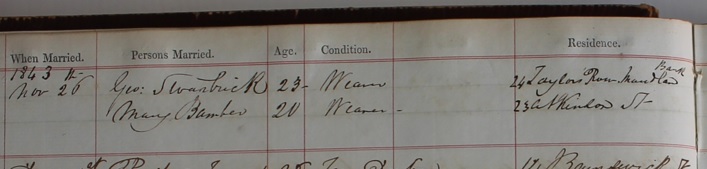 When Married. Persons Married. Age. Condition. Residence.
1843
Nov 26th Geo: Swarbrick 23 - Weaver 24 Taylors Row Bank
Mary Bamber 20 Weaver - 23 Atkinson St
Brunswick St